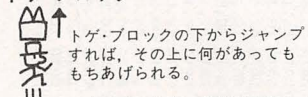 トゲ・ブロックの下からジャンプ
すれば，その上に何があっても
もちあげられる。